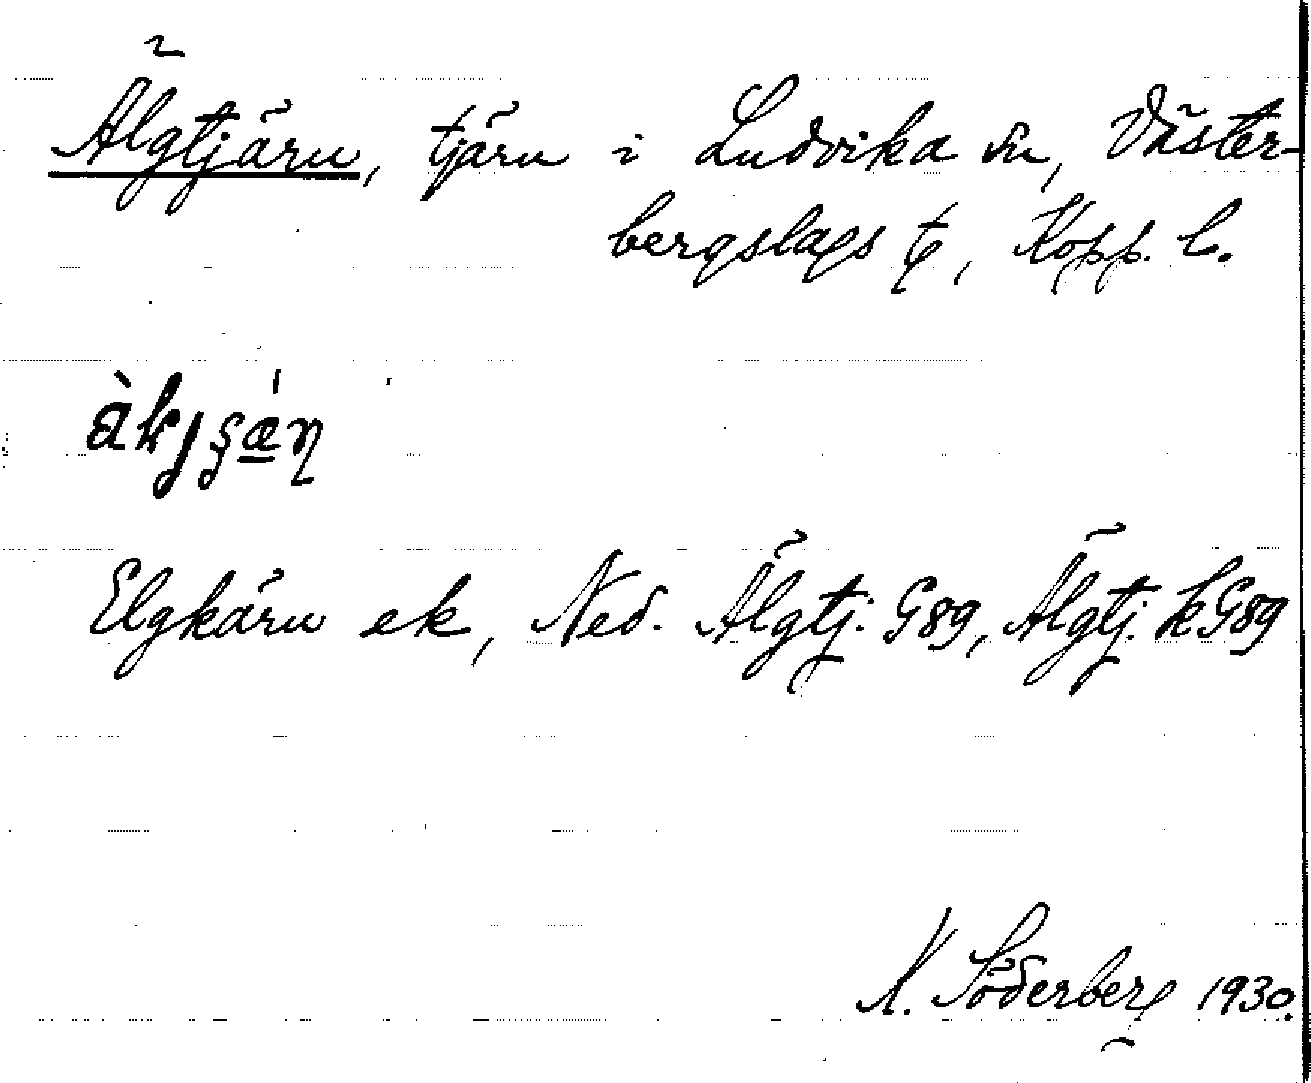 Älgtjärn, tjärn i Ludvika sn, Väster-
bergslags tg, Kopp. l.
Elgkärn ek, Ned. Älgtj. G89, Älgtj. kG89
N. Söderberg 1930.